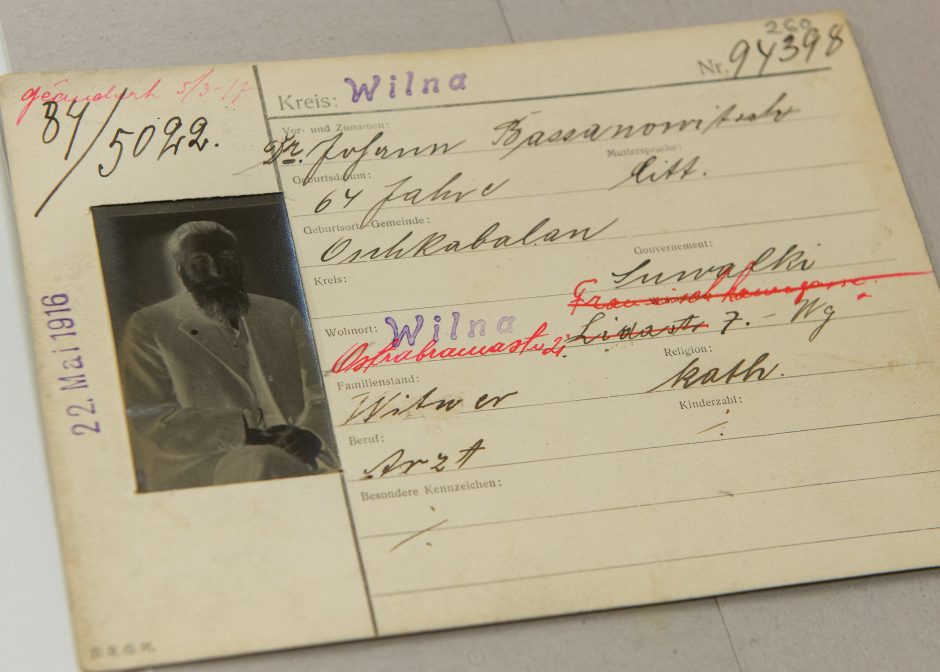 260
geändert 5/3-17
84/5022.
Kreis: Wilna Nr. 94398
Vor- und Zunamen:
Dr. Johann Bassanowitsch
Geburtsdatum: Muttersprache:
64 Jahre Litt.
Geburtsort-Gemeinde:
Oschkabalan
Kreis: Gouvernement:
Suwalki
Wohnort: Wilna
Ostrabramastr 21. Lidastr 7. - Wg
Familienstand: Religion:
Witwer kath.
Beruf: Kinderzahl:
Arzt ./.
Besondere Kennzeichen:
./.
22. Mai 1916